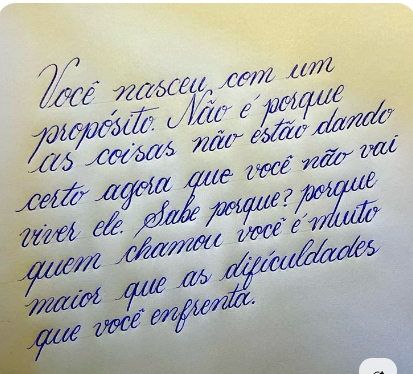 Você nasceu com um
propósito. Não é porque
as coisas não estão dando
certo agora que você não vai
viver ele. Sabe porque? porque
quem chamou você é muito
maior que as dificuldades
que você enfrenta.